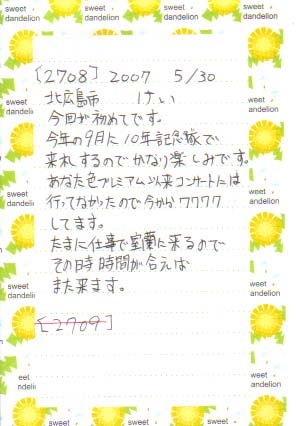 sweet
dandelion
sweet
dandelion
sweet
dandelion
[2708] 2007 5/30
北広島市 けい
今回が初めてです。
今年の9月に10年記念隊で
来札するのでかなり楽しみです。
あなた色プレミアム以来コンサートには
行ってなかったので今からワクワク
してます。
たまに仕事で室蘭に来るので
その時時間が合えば
また来ます。
[2709]
sweet
dandelion
sweet
dandeli
sweet
dandelion
sweet
dandeli
sweet
dandelion
sweet
dandeli
eet
dandelion
eet
ndeli
sweet
dandelion
sweet
dandelion
sweet
dandelion